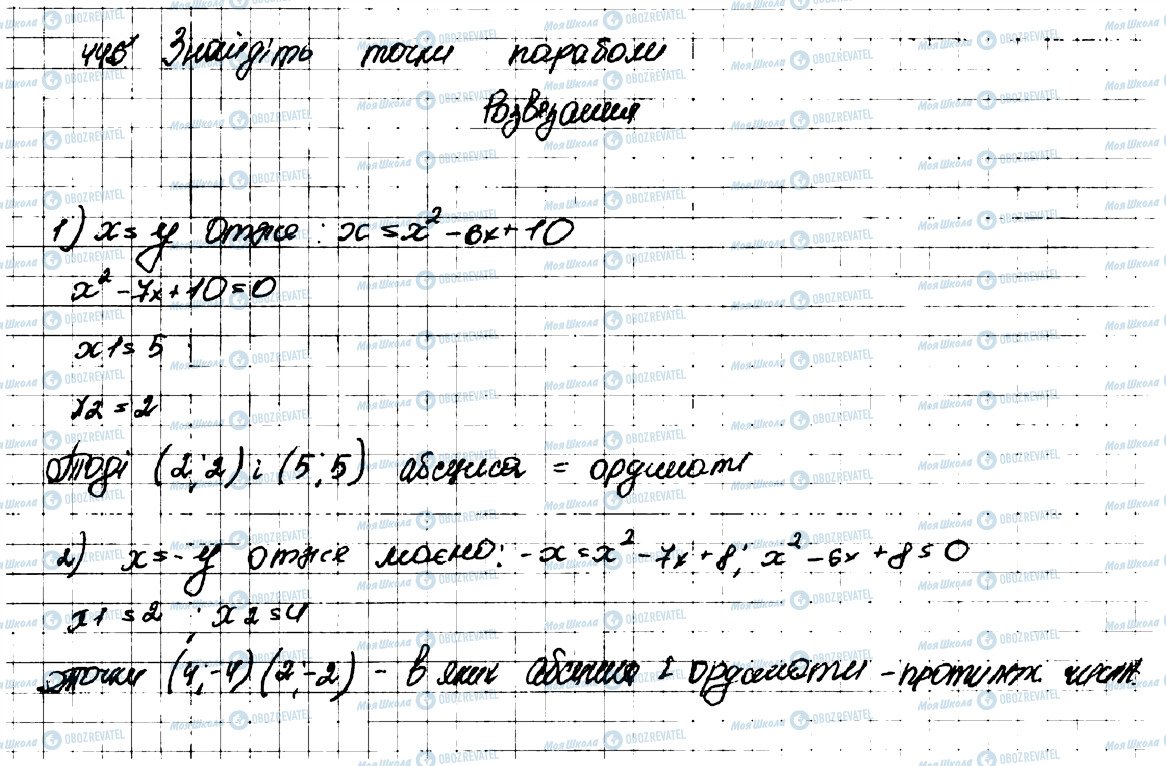 445 Знайдіть точки параболи
Розвязання
1) x = y Отже: x = x² - 6x + 10
x² - 7x + 10 = 0
x1 = 5
x2 = 2
Тоді (2; 2) і (5; 5) абсциса = ординаті
2) x = -y отже маємо: -x = x² - 7x + 8; x² - 6x + 8 = 0
x1 = 2 ; x2 = 4
точки (4; -4) (2; -2) - в яких абсциса і ординати - протилеж. числа